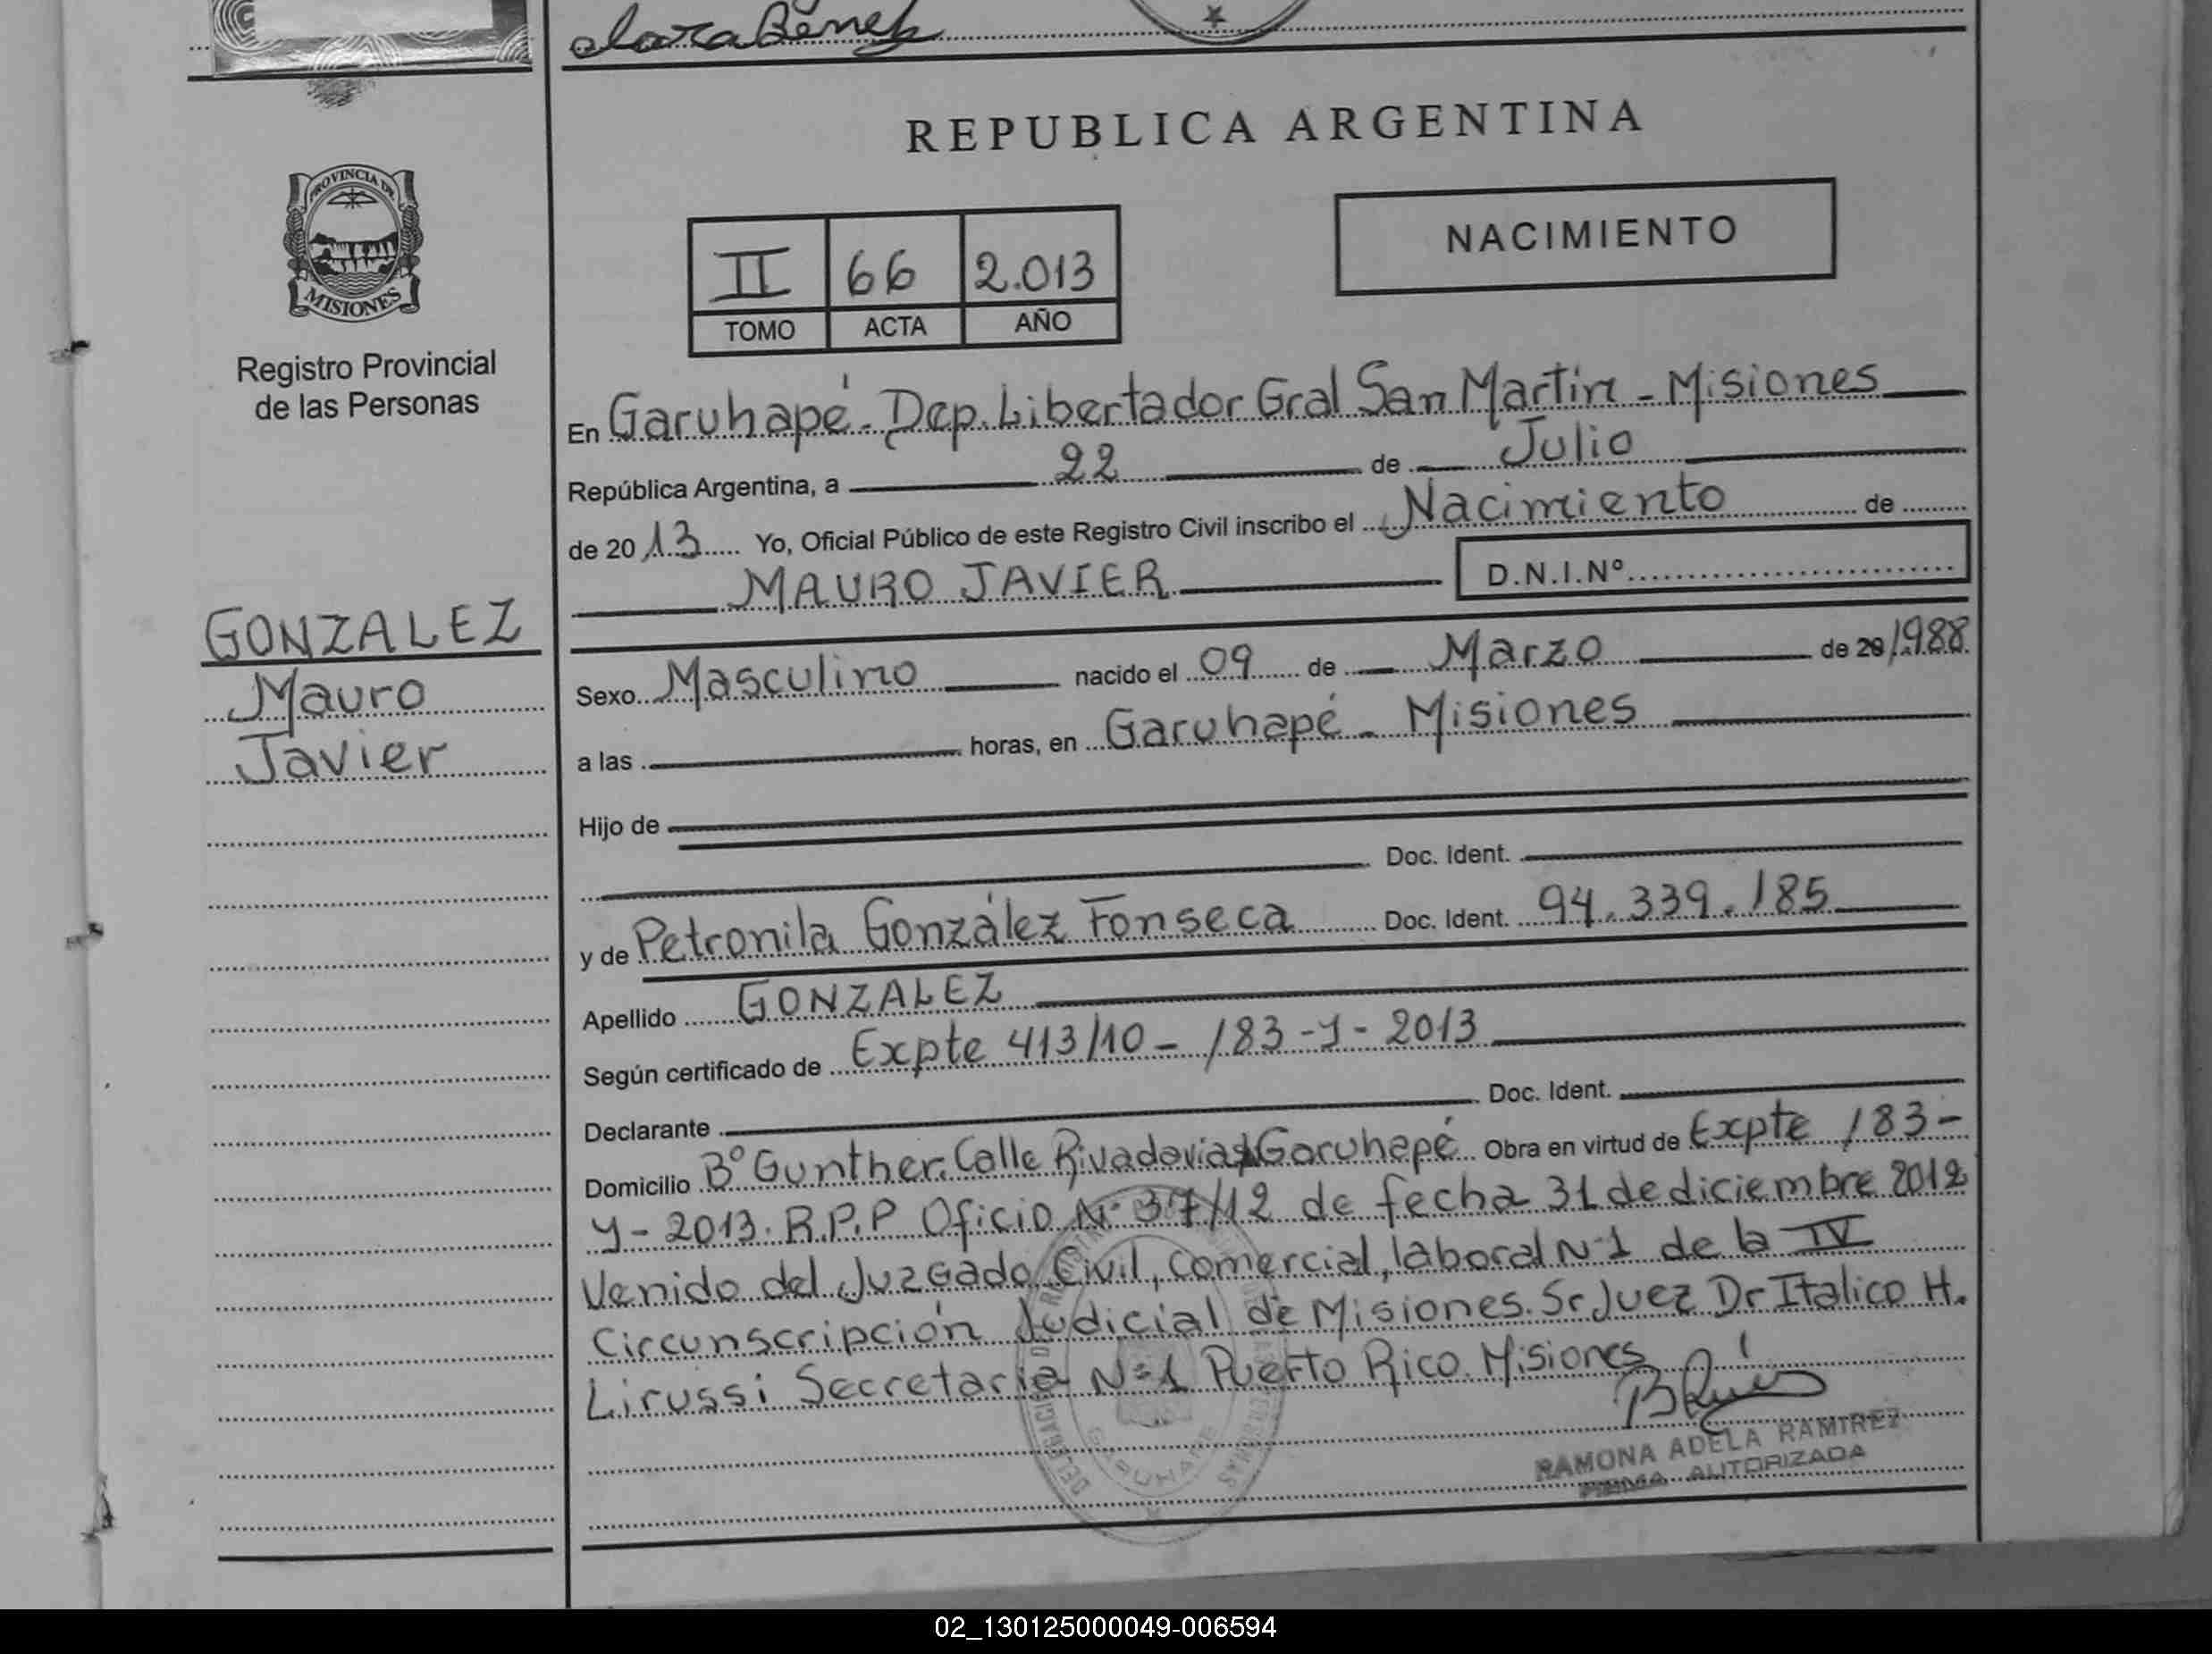 Clara Benez
REPUBLICA ARGENTINA
PROVINCIA DE
MISIONES
Registro Provincial
de las Personas
II 66 2.013
TOMO ACTA AÑO
NACIMIENTO
En Garuhapé - Dep. Libertador Gral San Martín - Misiones
República Argentina, a 22 de Julio
de 2013 Yo, Oficial Público de este Registro Civil inscribo el Nacimiento de
MAURO JAVIER D.N.I.Nº
GONZALEZ
Mauro
Javier
Sexo Masculino nacido el 09 de Marzo de 20 1.988
a las horas, en Garuhapé - Misiones
Hijo de
Doc. Ident.
y de Petronila González Fonseca Doc. Ident. 94.339.185
Apellido GONZALEZ
Según certificado de Expte 413/10 - 183 - y - 2013
Declarante Doc. Ident.
Domicilio Bº Gunther. Calle Rivadavia Garuhapé Obra en virtud de Expte 183 -
y - 2013. R.P.P Oficio Nº 37/12 de fecha 31 de diciembre 2012
Venido del Juzgado Civil, Comercial, laboral Nº1 de la IV
Circunscripción Judicial de Misiones. Sr Juez Dr Italico H.
Lirussi Secretaria Nº 1 Puerto Rico. Misiones
RAMONA ADELA RAMIREZ
FIRMA AUTORIZADA
GARUHAPE
02_130125000049-006594